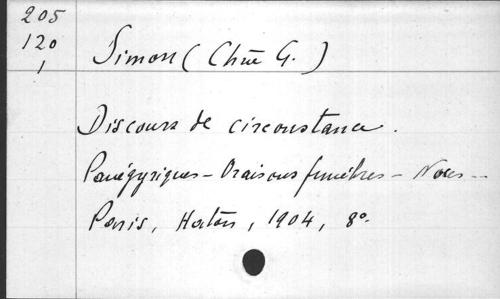 205
120
1
Simon (Chne G.)
Discours de circonstance.
Panégyriques - Oraisons funèbres - Noces --
Paris, 1904, 8º.